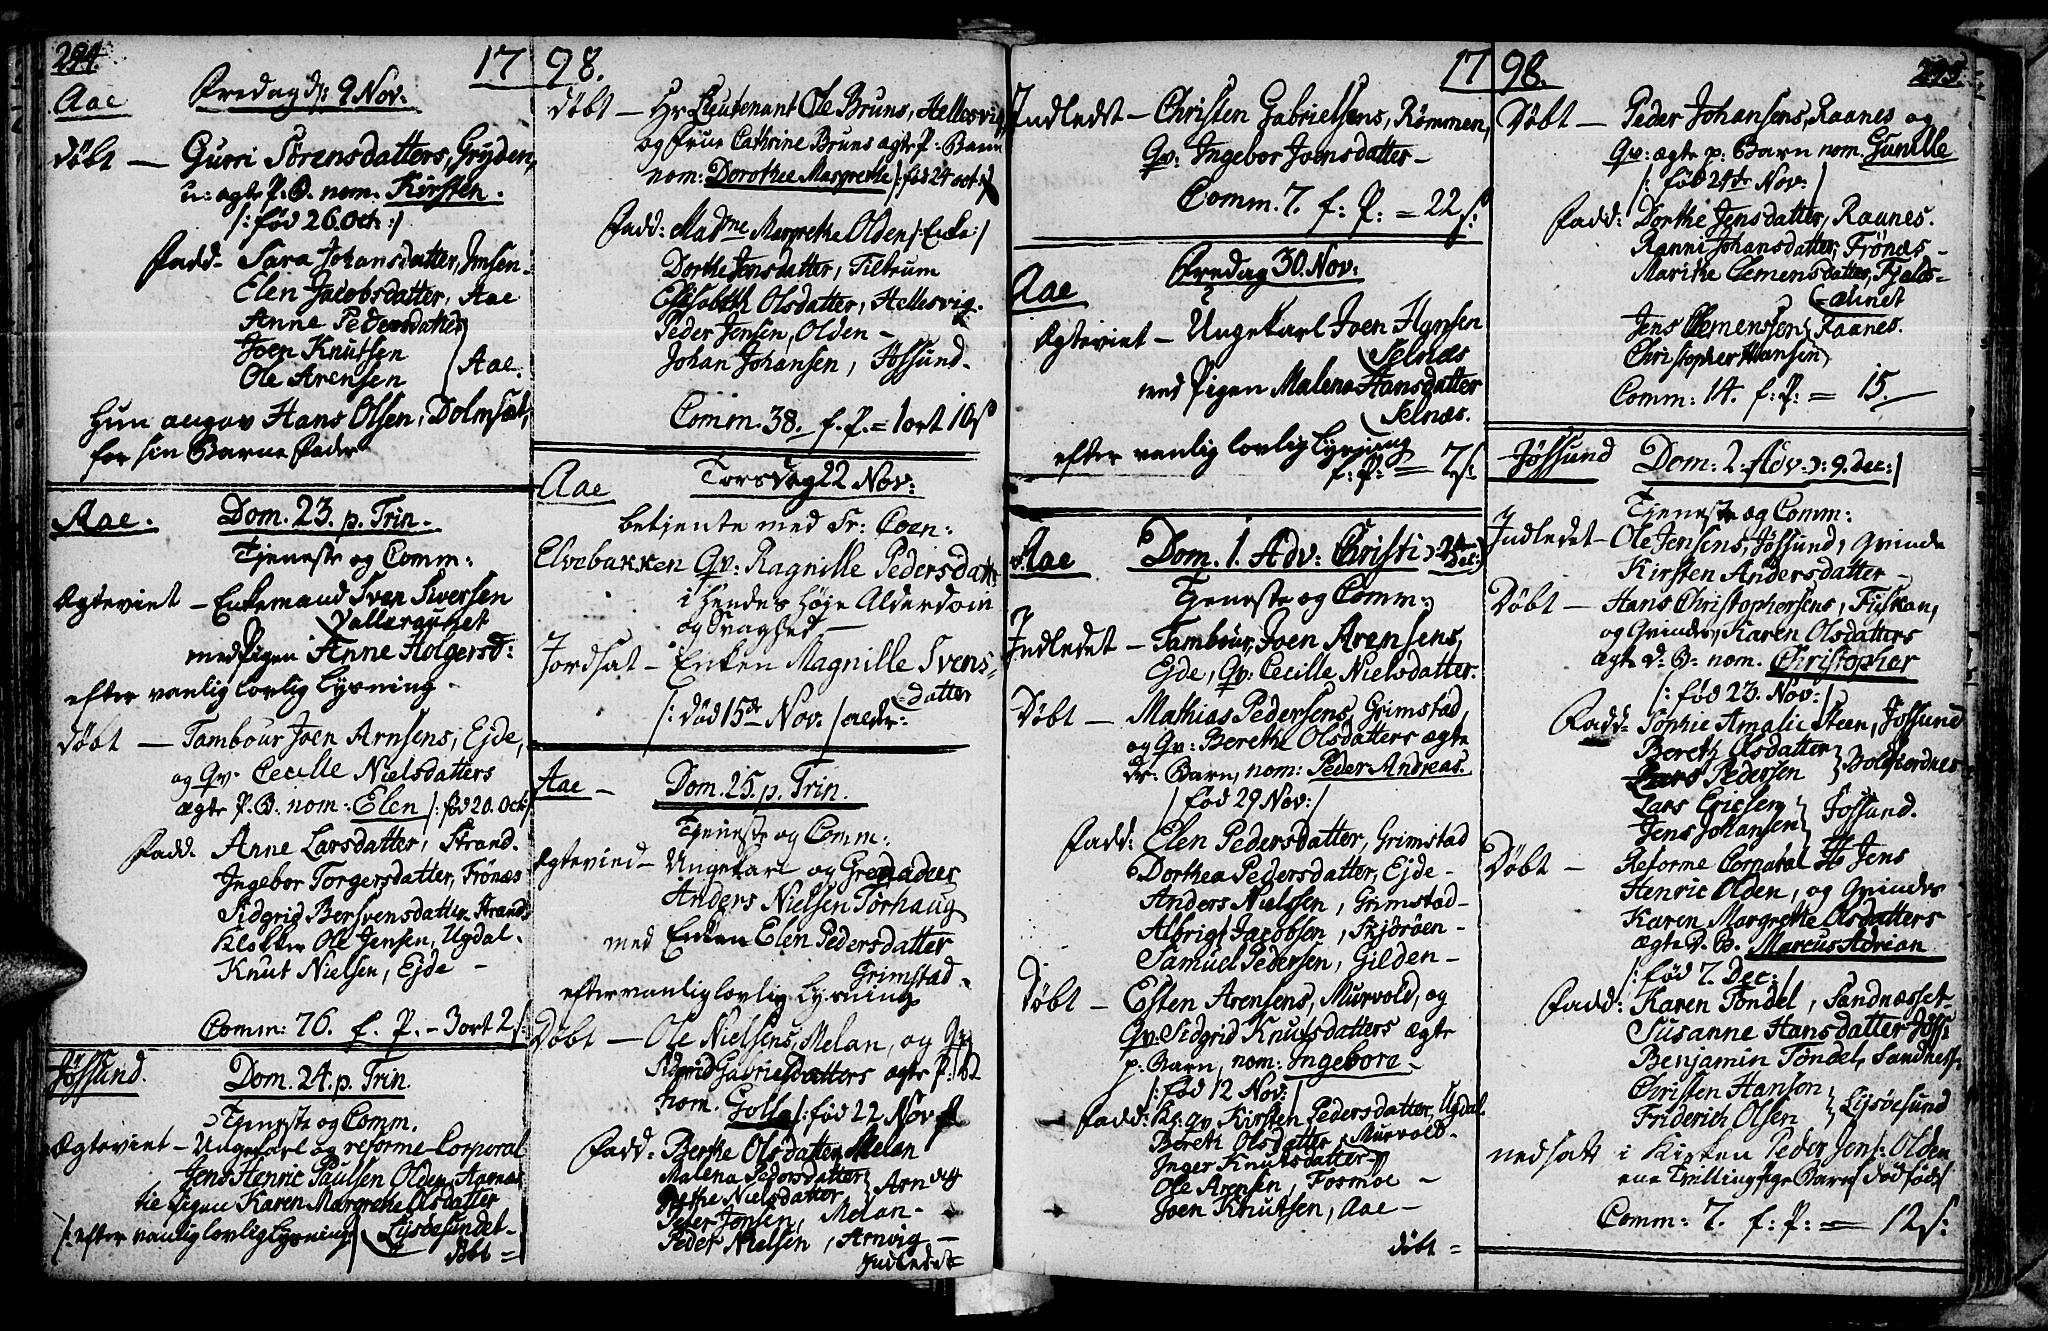 294.
1798.
Aae Fredag d: 9 Nov:
Døbt — Gurri Sørensdatters, Gryden,
u: ægte P. B. nom. Kirsten.
/: fød 26. Oct: /
Fadd. Sara Johansdatter, Imsen.
Elen Jacobsdatter, Aae
Anne Pedersdatter
Joen Knutsen
Ole Arensen } Aae.
Hun angav Hans Olsen, Dolmsæt,
for sin Barne Fader
Aae. Dom. 23. p. Trin.
Tjeneste og Comm:
Ægteviet — Enkemand Sven Siversen
Vallersuset
med Pigen Anne Holgersd:
efter vanlig lovlig Lysning.
Døbt — Tambour Joen Arnsens, Ejde,
og Qv. Cecille Nielsdatters
ægte P. B. nom: Elen /: fød 20. Oct:/
Fadd. Anne Larsdatter, Strand.
Ingebor Torgersdatter, Frönæs
Sidgrig Bersvensdatter Strand
Klokker Ole Jensen, Ugdal.
Knut Nielsen, Ejde —
Comm: 76. f. P. — 3 ort 2 s:
Jøssund. Dom. 24. p. Trin.
Tjeneste og Comm.
Ægteviet — Ungekarl og reforme Corporal
Jens Henric Paulsen Olden, Aarnæs
til Pigen Karen Margrethe Olsdatter
/: efter vanlig lovlig Lysning: / Lysöesundet —
Døbt =
Døbt — Hr Lieutenant Ole Bruns, Hellesvig
og Frue Cathrine Bruns ægte P. Barn
nom: Dorothee Margrethe /: fød 24 oct:/
Fadd: Madme Margrethe Olden /: Enke:/
Dorthe Jensdatter, Tiltrum
Elisabeth Olsdatter, Hellesvig.
Peder Jensen, Olden —
Johan Johansen, Jøssund.
Comm. 38. f. P. = 1 ort 10 s
Aae Torsdag 22 Nov:
betjente med Sr: Coen:
Elvebakken Qv: Ragnille Pedersdatter
i hendes høje Alderdom
og Svaghed —
Jordsat — Enken Magnille Svens=
datter
/: død 15de Nov. / alder:
Aae — Dom. 25. p. Trin.
Tjeneste og Comm:
Ægteviet — Ungekarl og Grenadeer
Anders Nielsen Törhaug
med Enken Elen Pedersdatter
Grimstad
efter vanlig lovlig Lysning
Døbt — Ole Nielsens, Melan, og Qv
Sidgrid Gabrielsdatters ægte P: B
nom. Golla /: fød 22 Nov
Fadd: Berthe Olsdatter Melan
Malena Pedersdatter
Berthe Nielsdatter } Arnvig
Peter Jonsen, Melan —
Peder Nielsen, Arnvig —
Indledet =
1798.
295.
Indledet — Christen Gabrielsens, Römmen,
Qv: Ingebor Joensdatter —
Comm. 7. f: P: = 22 s:
Aae Fredag 30. Nov:
Ægteviet — Ungekarl Joen Hansen
Selnæs
med Pigen Malena Hansdatter
Selnæs.
efter vanlig lovlig Lysning
f: P: = 7 s:
Aae Dom. 1. Adv: Christi ɔ: 2 Dec:
Tjeneste og Comm:
Indledet — Tambour Joen Arensens,
Ejde, Qv: Cecille Nielsdatter.
Døbt — Mathias Pedersens, Grimstad,
og Qv: Berethe Olsdatters ægte
dr: Barn, nom: Peder Andreas.
/ fød 29 Nov: /
Fadd: Elen Pedersdatter, Grimstad
Dorthea Pedersdatter, Ejde —
Anders Nielssen, Grimstad —
Albrigt Jacobsen, Skjöröen —
Samuel Pedersen, Gilden —
Døbt — Esten Arensens, Murvold, og
Qv: Sidgrid Knutsdatters ægte
p: Barn, nom: Ingebore.
/: fød 12 Nov: /
Fadd: Kl: qv. Kirsten Pedersdatter, Ugdal
Bereth Olsdatter, Murvold.
Inger Knutsdatter
Ole Arensen, Fosmoe —
Joen Knutsen, Aae —
Døbt =
Døbt — Peder Johansens, Raanes og
Qv: ægte p: Barn nom: Gunille
/: fød 24de Nov: /
Fadd: Dorthe Jensdatter, Raanes.
Ranni Johansdatter, Frönæs —
Marithe Clemensdatter, Fjelds=
ætinet
Jens Clemenssen } Raanes.
Christopher Hansen
Comm: 14. f: P: = 15. —
Jøssund Dom: 2. Adv: ɔ: 9. Dec: /
Tjeneste og Comm:
Indledet — Ole Jensens, Jøssund, Qvinde
Kirsten Andersdatter —
Døbt — Hans Christophersens, Fiskan,
og Qvindes Karen Olsdatters
ægte d: B: nom. Christopher
/: fød 23. Nov: /
Fadd: Sophie Amalie Steen, Jøssund
Bereth Olsdatter
Lars Pedersen } Botsfiordnes
Lars Ericsen
Jens Johansen } Jøssund.
Døbt — Reforme Corporal Jens
Henric Olden, og Qvindes
Karen Margrethe Olsdatters
ægte d. B. Marcus Adrian
/: fød 7. Dec: /
Fadd: Karen Töndel, Sandnæsset —
Susanne Hansdatter Jøss:
Benjamin Töndel, Sandness.
Christen Hanson
Friderich Olsen } Lysöesund
nedsatt i Kirken Peder Jens: Olden
ene Trilling Pige Barn / dødfød /
Comm: 7. f: P: = 12 s: